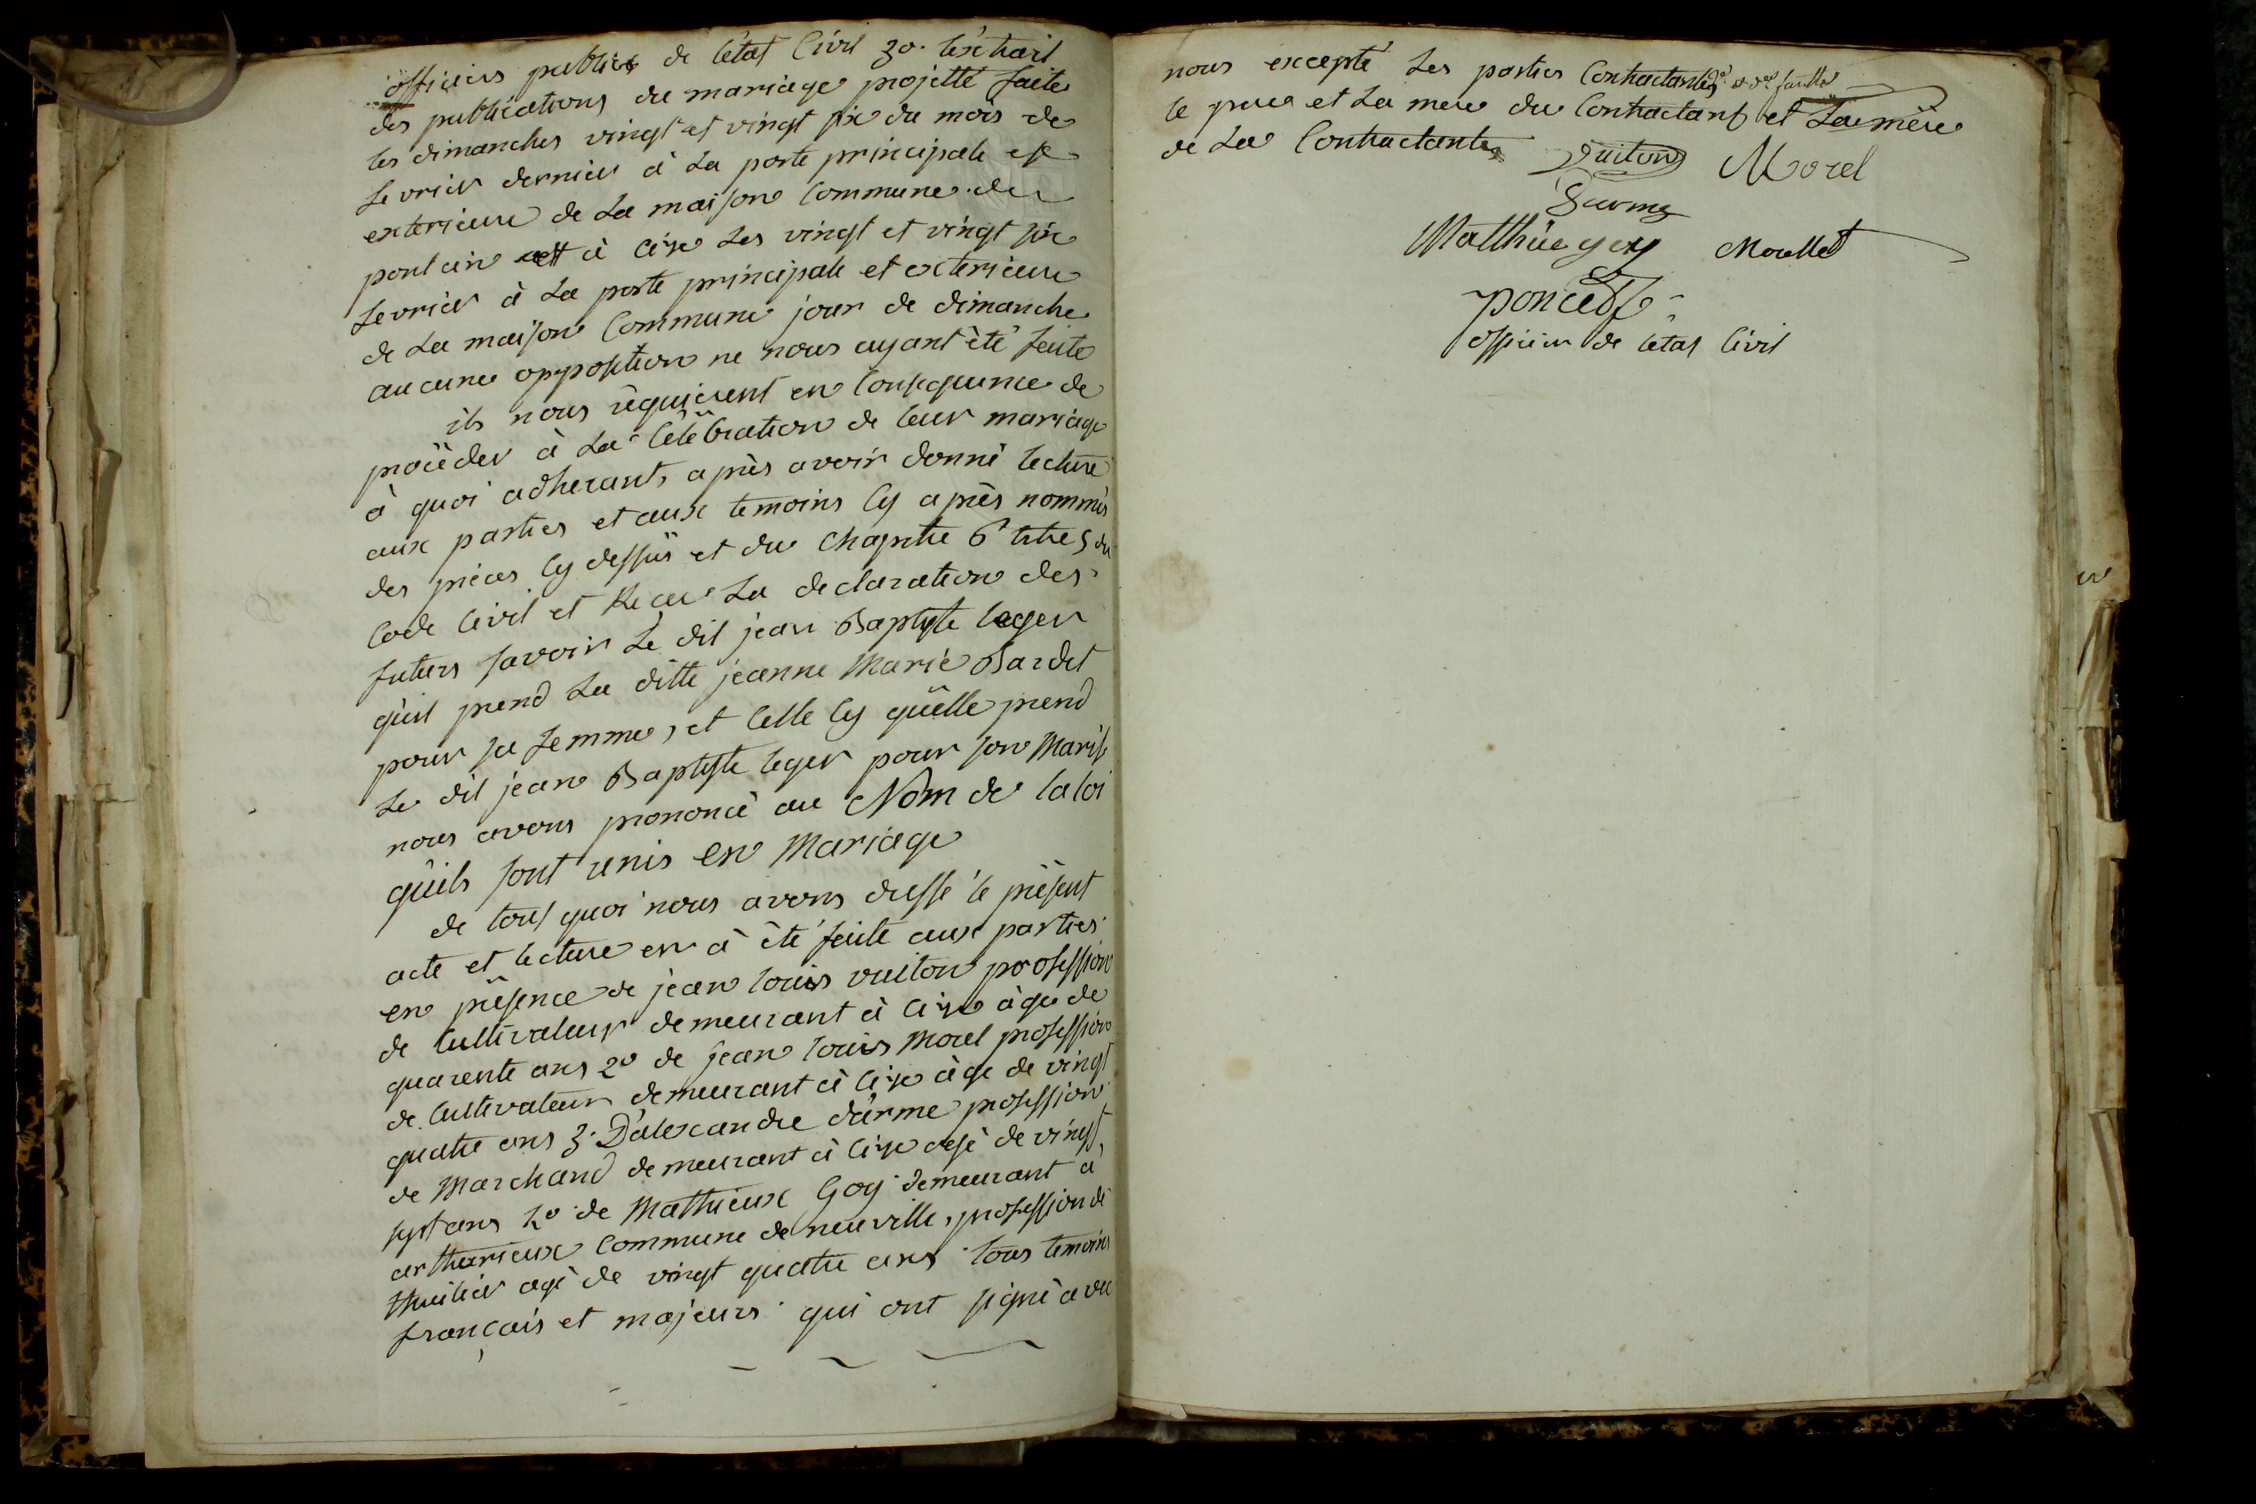 officiers publics de letat Civil 3o. lextrait
des publications du mariage projetté faite
les dimanches vingt et vingt six du mois de
fevrier dernier à La porte principale et
exterieure de La maison Commune du
pont ain et à Cize Les vingt et vingt six
fevrier à La porte principale et exterieure
de La maison Commune jour de dimanche
aucune opposition ne nous ayant été faite
ils nous requierent en Consequence de
proceder à La Célébration de leur mariage
à quoi adherant, après avoir donné lecture
aux parties et aux temoins Cy après nommés
des pièces Cy dessus et du Chapitre 6 titre 5 du
Code Civil et Reçu La declaration des
futurs savoir Le dit jean Baptiste leger
quil prend La ditte jeanne Marie Bardet
pour sa femme, et Celle Cy quelle prend
Le dit jean Baptiste leger pour son Marit
nous avons prononcé au Nom de la loi
quils sont unis en Mariage
de tout quoi nous avons dressé le présent
acte et lecture en à été faite aux parties
en présence de jean louis vuiton profession
de Cultivateur demeurant à Cize àge de
quarente ans 2o de jean louis Morel profession
de Cultivateur demeurant à Cize àge de vingt
quatre ans 3. Dalexandre darme profession
de Marchand demeurant à Cize agé de vingt
sept ans 4o de Mathieux Goy demeurant à
arthurieux Commune de neuville, profession de
thuilier agé de vingt quatre ans tous temoins
français et majeurs qui ont signé avec
nous excepté Les parties Contractantes
le pere et La mere du Contractant et La mère
de La Contractante
Vuiton Morel
Darme
Matthieu goy Moullet
poncet
officier de letat Civil